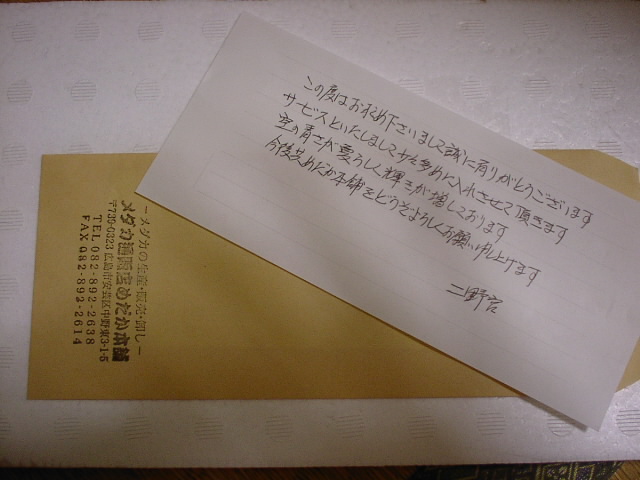 この度はお求め下さいまして誠に有りがとうございます
サービスといたしまして少々多めに入れさせて頂きます
空の青さが夏らしく輝きが増しております
今後共めだか本舗をどうぞよろしくお願い申し上げます
二野宮
ーメダカの生産・販売・卸しー
メダカ通販店めだか本舗
〒739-0323 広島市安芸区中野東3-1-5
TEL 082-892-2638
FAX 082-892-2614